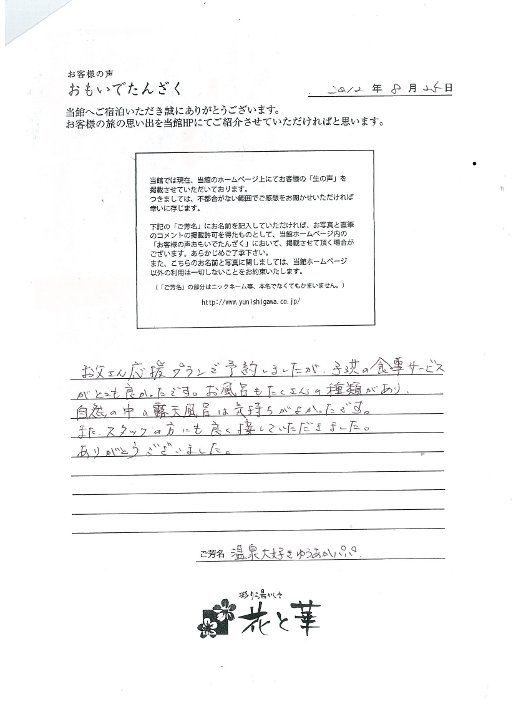 お客様の声
おもいでたんざく
2012 年 8 月 25 日
当館へご宿泊いただき誠にありがとうございます。
お客様の旅の思い出を当館HPにてご紹介させていただければと思います。
当館では現在、当館のホームページ上にてお客様の「生の声」を
掲載させていただいております。
つきましては、不都合がない範囲でご感想をお聞かせいただければ
幸いに存じます。
下記の「ご芳名」にお名前を記入していただければ、お写真と直筆
のコメントの掲載許可を得たものとして、当館ホームページ内の
「お客様の声おもいでたんざく」において、掲載させて頂く場合が
ございます。あらかじめご了承下さい。
また、こちらのお名前と写真に関しましては、当館ホームページ
以外の利用は一切しないことをお約束いたします。
（「ご芳名」の部分はニックネーム等、本名でなくてもかまいません。）
http://www.yunishigawa.co.jp/
お父さん応援プランで予約しましたが、子供の食事サービス
がとても良かったです。お風呂もたくさんの種類があり、
自然の中の露天風呂は気持ちがよかったです。
また、スタッフの方にも良く接していただきました。
ありがとうございました。
ご芳名 温泉大好きゆうあかパパ
彩り湯かしき
花と華